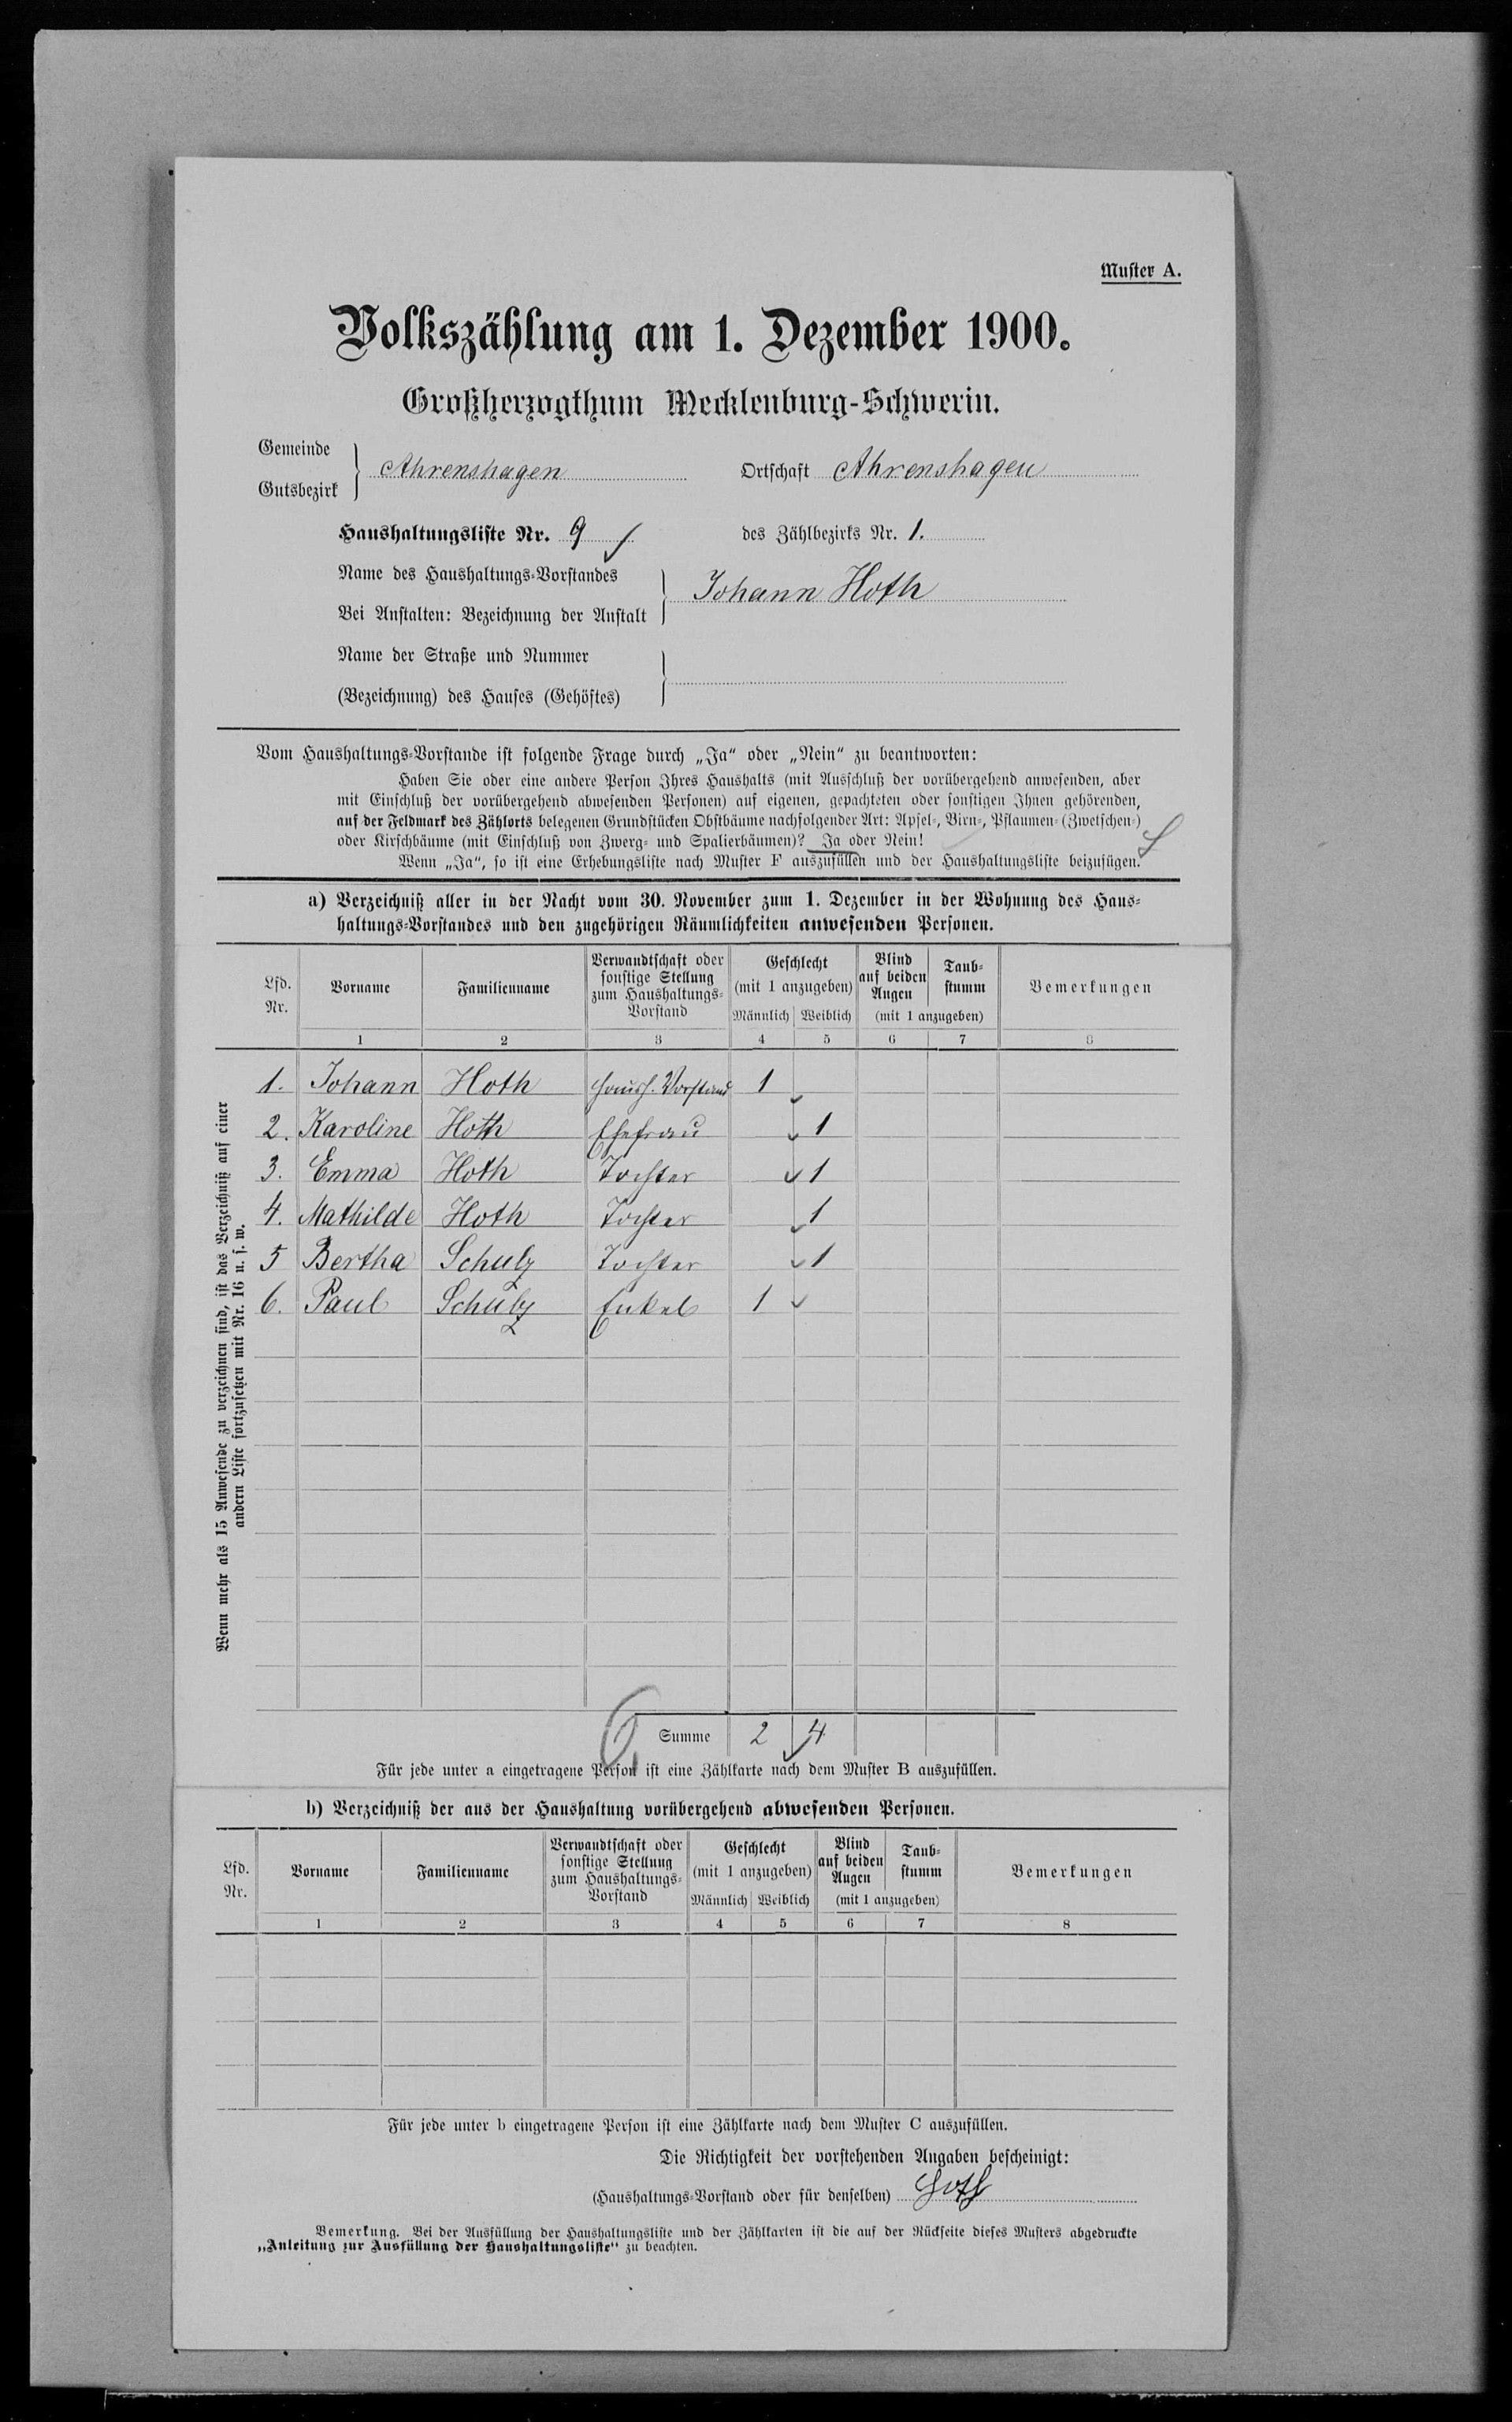 Muster A.
Volkszählung am 1. Dezember 1900.
Großherzogthum Mecklenburg-Schwerin.
Gemeinde
Gutsbezirk
Ahrenshagen
Ortschaft Ahrenshagen
Haushaltungsliste Nr. 9
des Zählbezirks Nr. 1.
Name des Haushaltungs-Vorstandes
Bei Anstalten: Bezeichnung der Anstalt
Johann Hoth
Name der Straße und Nummer
(Bezeichnung) des Hauses (Gehöftes)
Vom Haushaltungs-Vorstande ist folgende Frage durch „Ja“ oder „Nein“ zu beantworten:
Haben Sie oder eine andere Person Ihres Haushalts (mit Ausschluß der vorübergehend anwesenden, aber
mit Einschluß der vorübergehend abwesenden Personen) auf eigenen, gepachteten oder sonstigen Ihnen gehörenden,
auf der Feldmark des Zählorts belegenen Grundstücken Obstbäume nachfolgender Art: Apfel-, Birn-, Pflaumen- (Zwetschen-)
oder Kirschbäume (mit Einschluß von Zwerg- und Spalierbäumen)? Ja oder Nein!
Wenn „Ja“, so ist eine Erhebungsliste nach Muster F auszufüllen und der Haushaltungsliste beizufügen.
a) Verzeichniß aller in der Nacht vom 30. November zum 1. Dezember in der Wohnung des Haus-
haltungs-Vorstandes und den zugehörigen Räumlichkeiten anwesenden Personen.
Lfd. Nr.
Vorname
Familienname
Verwandtschaft oder sonstige Stellung zum Haushaltungs-Vorstand
Geschlecht (mit 1 anzugeben)
Männlich Weiblich
Blind auf beiden Augen
Taub-stumm
(mit 1 anzugeben)
Bemerkungen
1 2 3 4 5 6 7 8
1. Johann Hoth Haush. Vorstand 1
2. Karoline Hoth Ehefrau 1
3. Emma Hoth Tochter 1
4. Mathilde Hoth Tochter 1
5 Bertha Schulz Tochter 1
6. Paul Schulz Enkel 1
Wenn mehr als 15 Anwesende zu verzeichnen sind, ist das Verzeichniß auf einer
andern Liste fortzusetzen mit Nr. 16 u. s. w.
6 Summe 2 4
Für jede unter a eingetragene Person ist eine Zählkarte nach dem Muster B auszufüllen.
b) Verzeichniß der aus der Haushaltung vorübergehend abwesenden Personen.
Lfd. Nr.
Vorname
Familienname
Verwandtschaft oder sonstige Stellung zum Haushaltungs-Vorstand
Geschlecht (mit 1 anzugeben)
Männlich Weiblich
Blind auf beiden Augen
Taub-stumm
(mit 1 anzugeben)
Bemerkungen
1 2 3 4 5 6 7 8
Für jede unter b eingetragene Person ist eine Zählkarte nach dem Muster C auszufüllen.
Die Richtigkeit der vorstehenden Angaben bescheinigt:
(Haushaltungs-Vorstand oder für denselben) Hoth
Bemerkung. Bei der Ausfüllung der Haushaltungsliste und der Zählkarten ist die auf der Rückseite dieses Musters abgedruckte
„Anleitung zur Ausfüllung der Haushaltungsliste“ zu beachten.